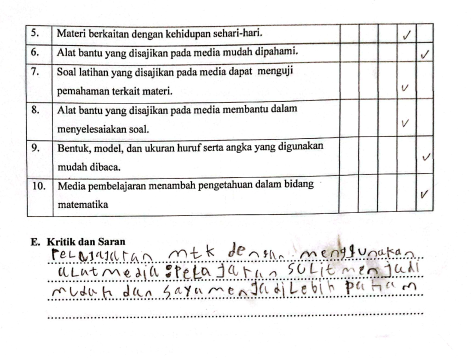 5. Materi berkaitan dengan kehidupan sehari-hari. ✓
6. Alat bantu yang disajikan pada media mudah dipahami. ✓
7. Soal latihan yang disajikan pada media dapat menguji
pemahaman terkait materi. ✓
8. Alat bantu yang disajikan pada media membantu dalam
menyelesaiakan soal. ✓
9. Bentuk, model, dan ukuran huruf serta angka yang digunakan
mudah dibaca. ✓
10. Media pembelajaran menambah pengetahuan dalam bidang
matematika ✓
E. Kritik dan Saran
Pelajaran mtk dengan menggunakan
alat media pelajaran sulit menjadi
mudah dan saya menjadi lebih paham